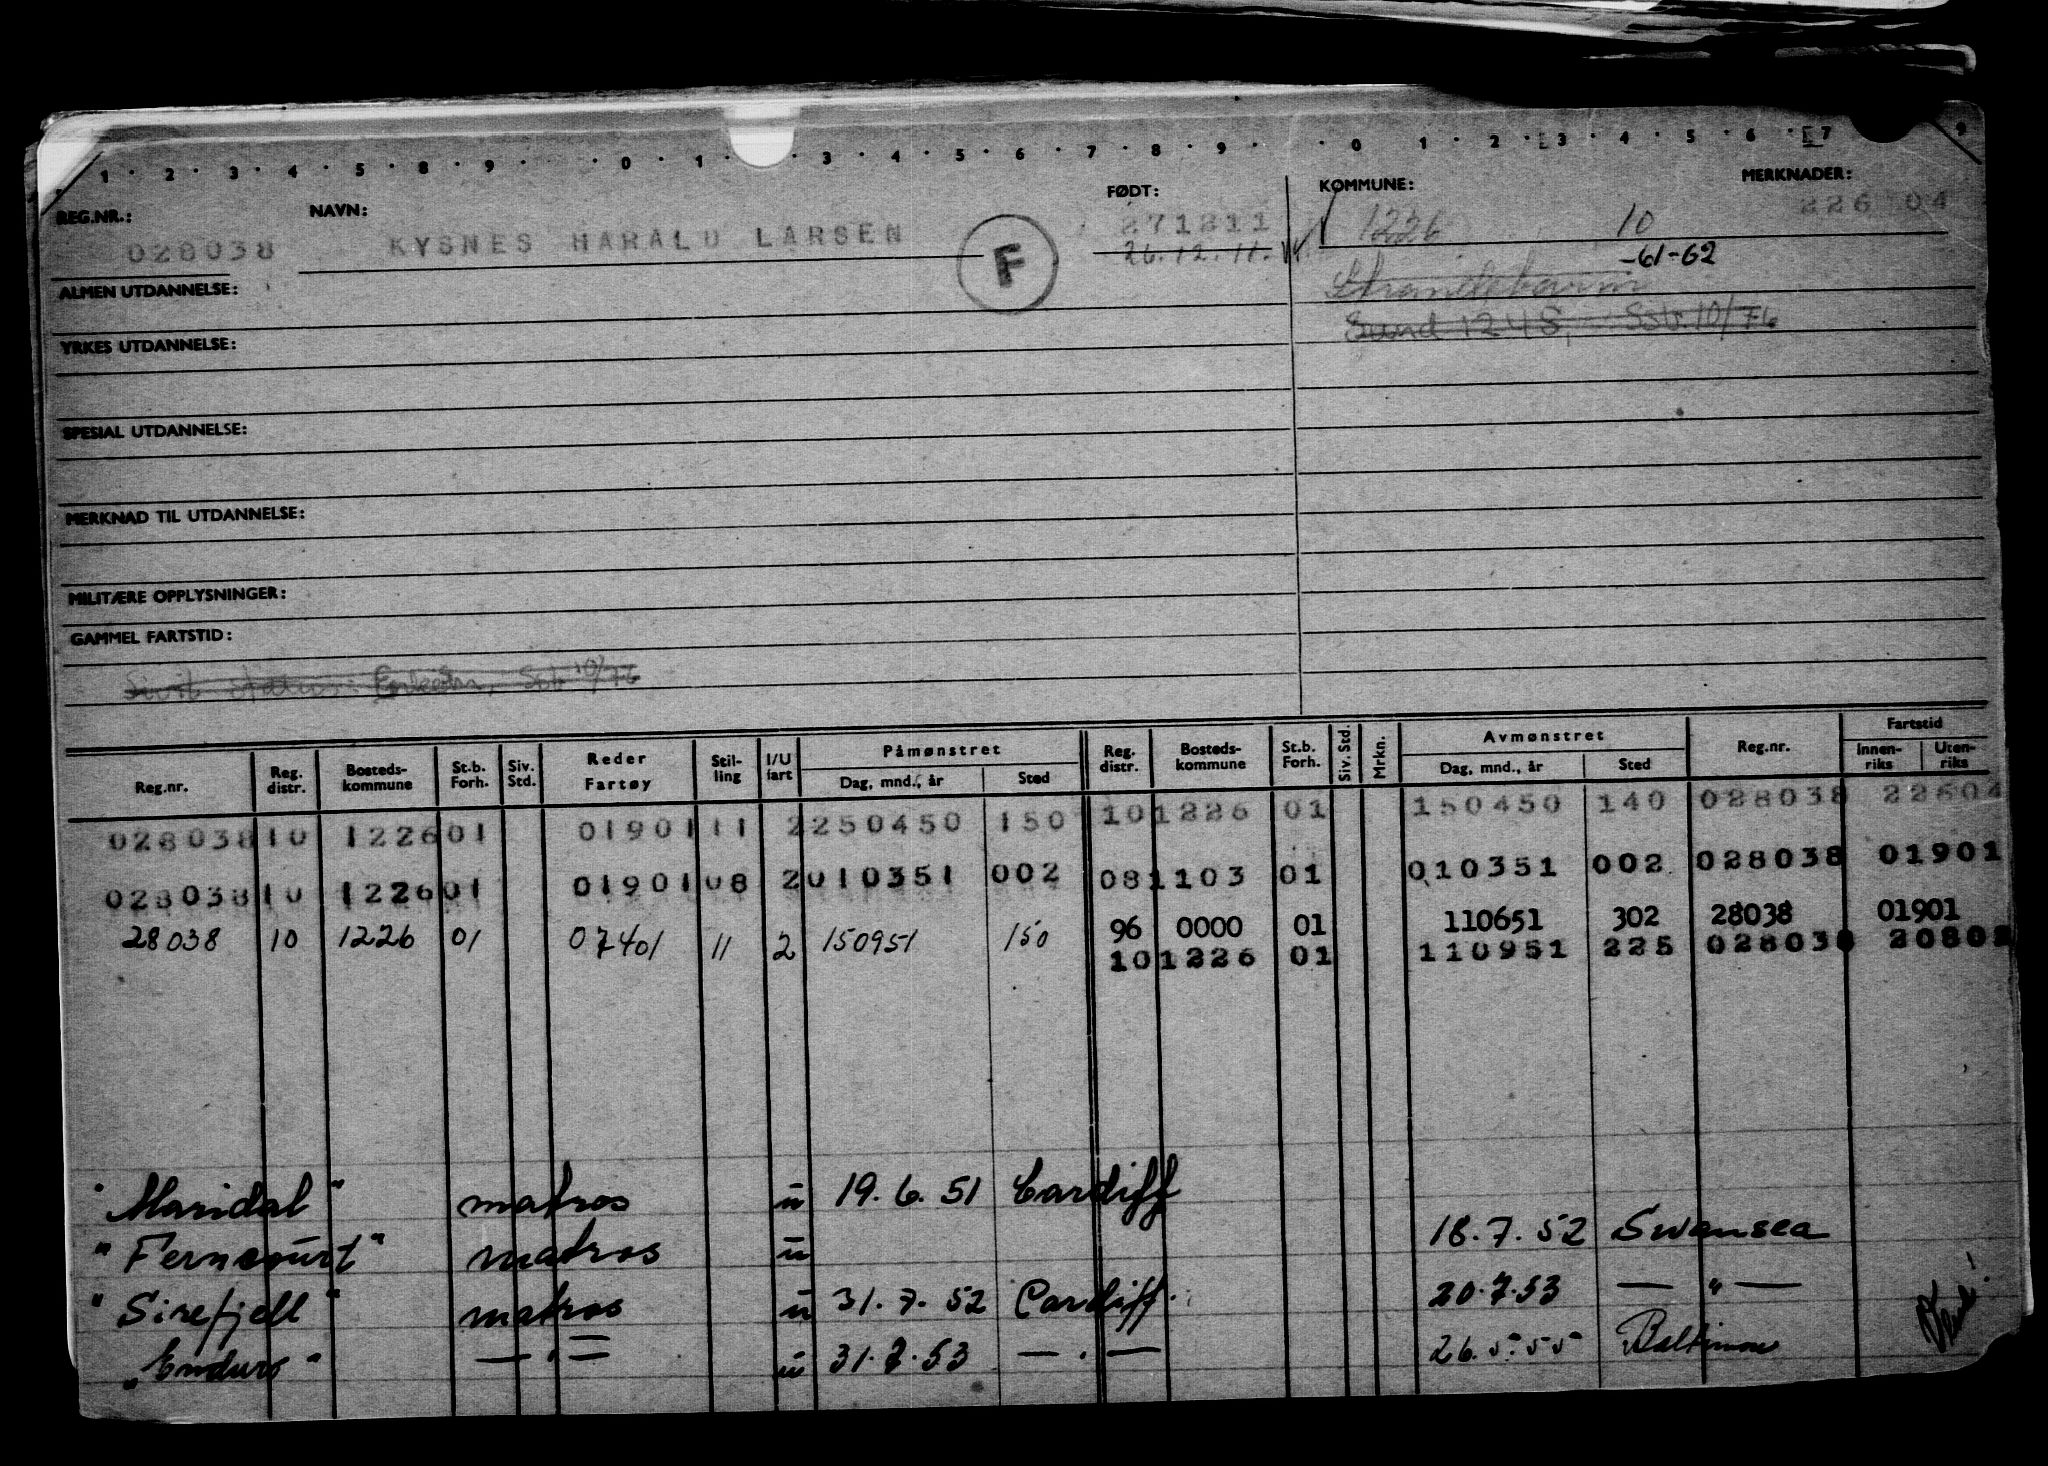 1 · 2 · 3 · 4 · 5 · 8 · 9 · · 0 · 1 · · 3 · 4 · 5 · 6 · 7 · 8 · 9 · · 0 · 1 · 2 · 3 · 4 · 5 · 6 · 7 9
REG.NR.: NAVN: FØDT: KOMMUNE: MERKNADER:
028038 KYSNES HARALD LARSEN F 271211 1226 10 226 04
26.12.11. -61-62
ALMEN UTDANNELSE: Strandebarm
YRKES UTDANNELSE: Sund 1245, Sstr. 10/76
SPESIAL UTDANNELSE:
MERKNAD TIL UTDANNELSE:
MILITÆRE OPPLYSNINGER:
GAMMEL FARTSTID:
Sivil status: 10/76
Reg.nr. Reg. distr. Bosteds-kommune St.b. Forh. Siv. Std. Reder Fartøy Stil-ling I/U fart Påmønstret Dag, mnd., år Sted Reg. distr. Bosteds-kommune St.b. Forh. Siv. Std. Mrkn. Avmønstret Dag, mnd., år Sted Reg.nr. Fartstid Innen-riks Uten-riks
028038 10 1226 01 01901 11 2 250450 150 10 1226 01 150450 140 028038 22604
028038 10 1226 01 01901 08 2 010351 002 08 1103 01 010351 002 028038 01901
28038 10 1226 01 07401 11 2 150951 150 96 0000 01 110651 302 28038 01901
10 1226 01 110951 225 028038 2080
"Maridal" matros u 19.6.51 Cardiff
"Ferncourt" matros u 18.7.52 Swansea
"Sirefjell" matros u 31.7.52 Cardiff. 20.7.53 — " —
"Enduro" — " — u 31.7.53 — " — 26.5.55 Baltimore